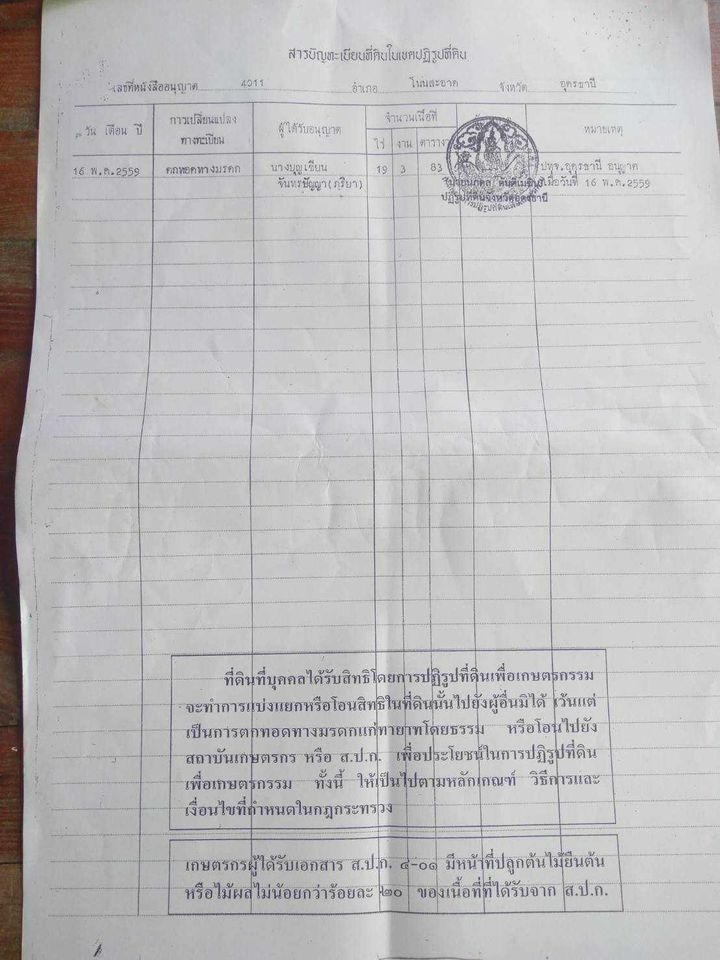 สารบัญทะเบียนที่ดินในเขตปฏิรูปที่ดิน
เลขที่หนังสืออนุญาต 4011 อำเภอ โนนสะอาด จังหวัด อุดรธานี
วัน เดือน ปี การเปลี่ยนแปลงทางทะเบียน ผู้ได้รับอนุญาต จำนวนเนื้อที่ หมายเหตุ
ไร่ งาน ตารางวา
16 พ.ค.2559 ตกทอดทางมรดก นางบุญเขียน 19 3 83 ปทจ.อุดรธานี อนุญาต
จันทรปัญญา(ภริยา) เมื่อวันที่ 16 พ.ค.2559
ปฏิรูปที่ดินจังหวัดอุดรธานี
ที่ดินที่บุคคลได้รับสิทธิโดยการปฏิรูปที่ดินเพื่อเกษตรกรรม
จะทำการแบ่งแยกหรือโอนสิทธิในที่ดินนั้นไปยังผู้อื่นมิได้ เว้นแต่
เป็นการตกทอดทางมรดกแก่ทายาทโดยธรรม หรือโอนไปยัง
สถาบันเกษตรกร หรือ ส.ป.ก. เพื่อประโยชน์ในการปฏิรูปที่ดิน
เพื่อเกษตรกรรม ทั้งนี้ ให้เป็นไปตามหลักเกณฑ์ วิธีการและ
เงื่อนไขที่กำหนดในกฎกระทรวง
เกษตรกรผู้ได้รับเอกสาร ส.ป.ก. ๔-๐๑ มีหน้าที่ปลูกต้นไม้ยืนต้น
หรือไม้ผลไม่น้อยกว่าร้อยละ ๒๐ ของเนื้อที่ที่ได้รับจาก ส.ป.ก.